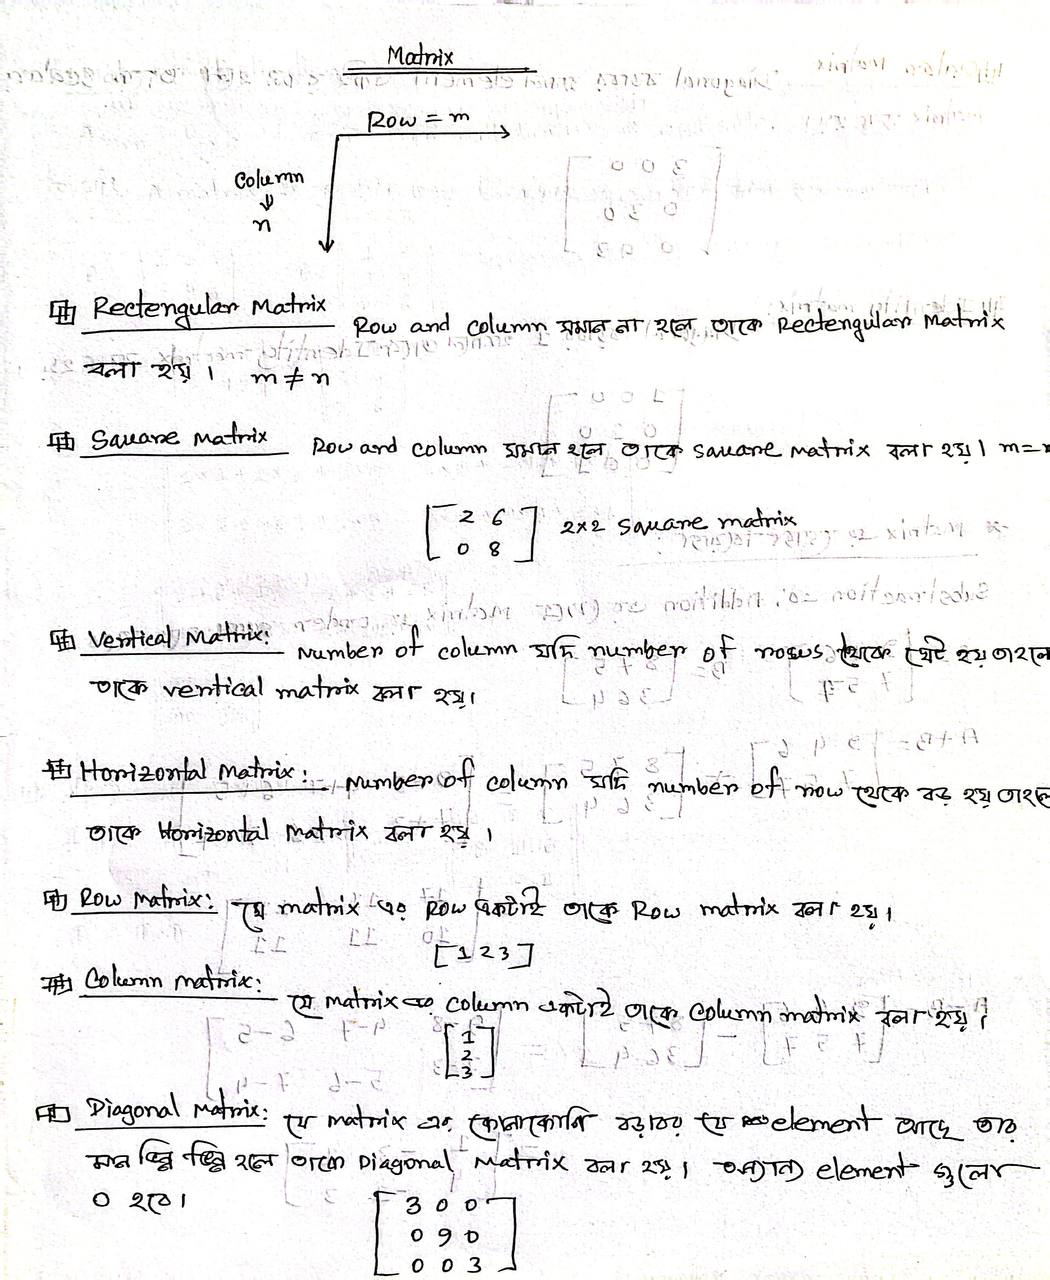 Matrix
Row = m
Column
↓
n
Rectengular Matrix
Row and column সমান না হলে তাকে Rectengular Matrix
বলা হয়। m ≠ n
Square Matrix Row and column সমান হলে তাকে square matrix বলা হয়। m=n
2 6
0 8
2×2 Square matrix
Vertical Matrix: Number of column যদি number of rows থেকে ছোট হয় তাহলে
তাকে vertical matrix বলা হয়।
Horizontal Matrix: Number of column যদি number of row থেকে বড় হয় তাহলে
তাকে Horizontal Matrix বলা হয়।
Row Matrix: যে matrix এর Row একটাই তাকে Row matrix বলা হয়।
[1 2 3]
Column matrix: যে matrix এর column একটাই তাকে Column matrix বলা হয়।
1
2
3
Diagonal Matrix: যে matrix এর কোনাকোনি বড়াবর যে element আছে তার
মান ভিন্ন ভিন্ন হলে তাকে Diagonal Matrix বলা হয়। অন্যান্য element গুলো
0 হবে।
3 0 0
0 9 0
0 0 3